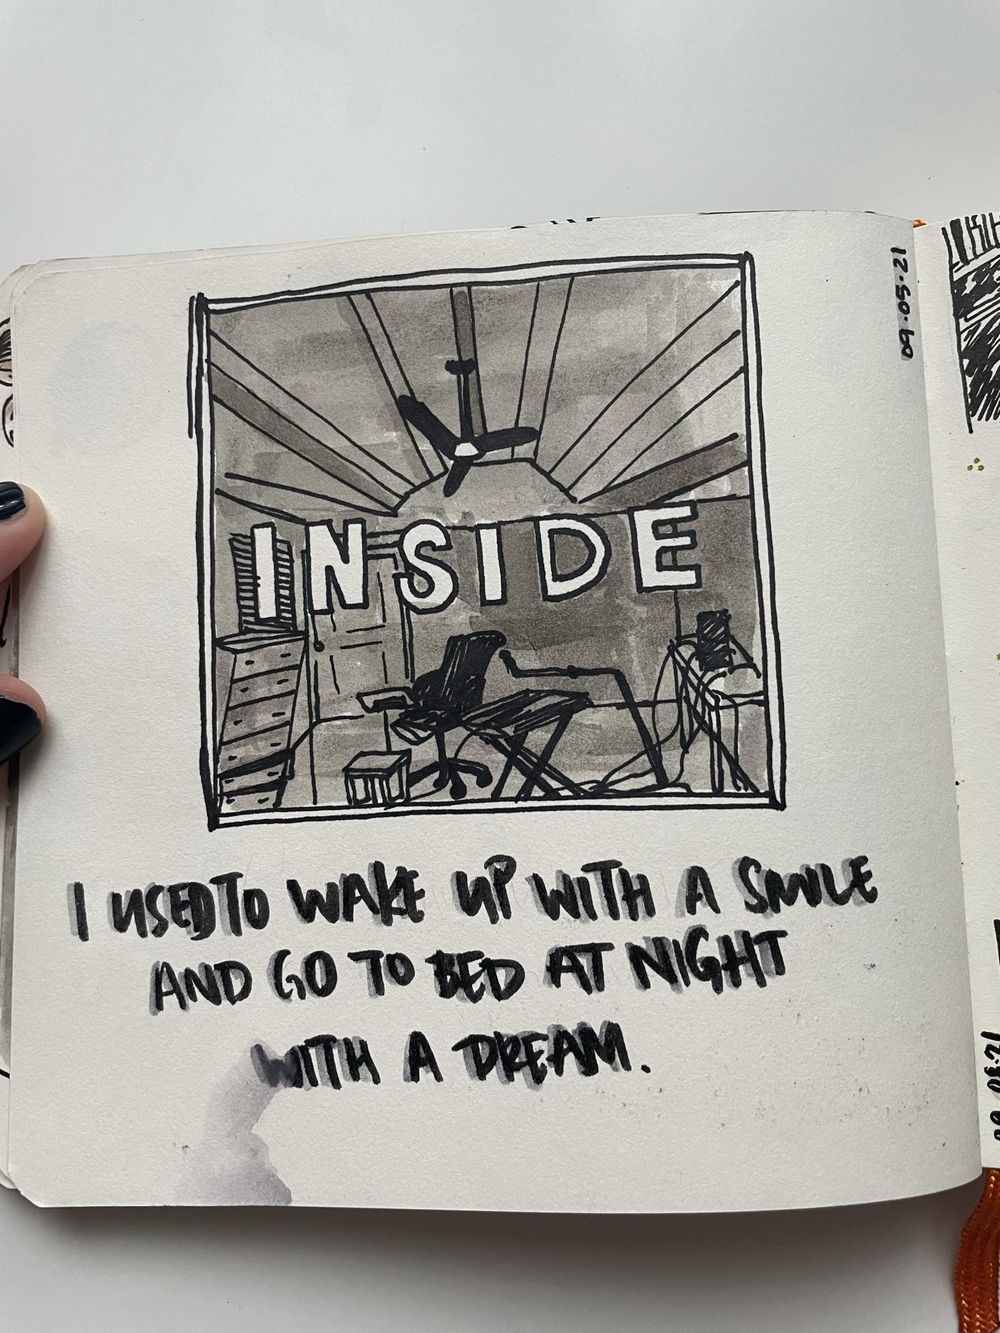 09.05.21
INSIDE
I USED TO WAKE UP WITH A SMILE
AND GO TO BED AT NIGHT
WITH A DREAM.